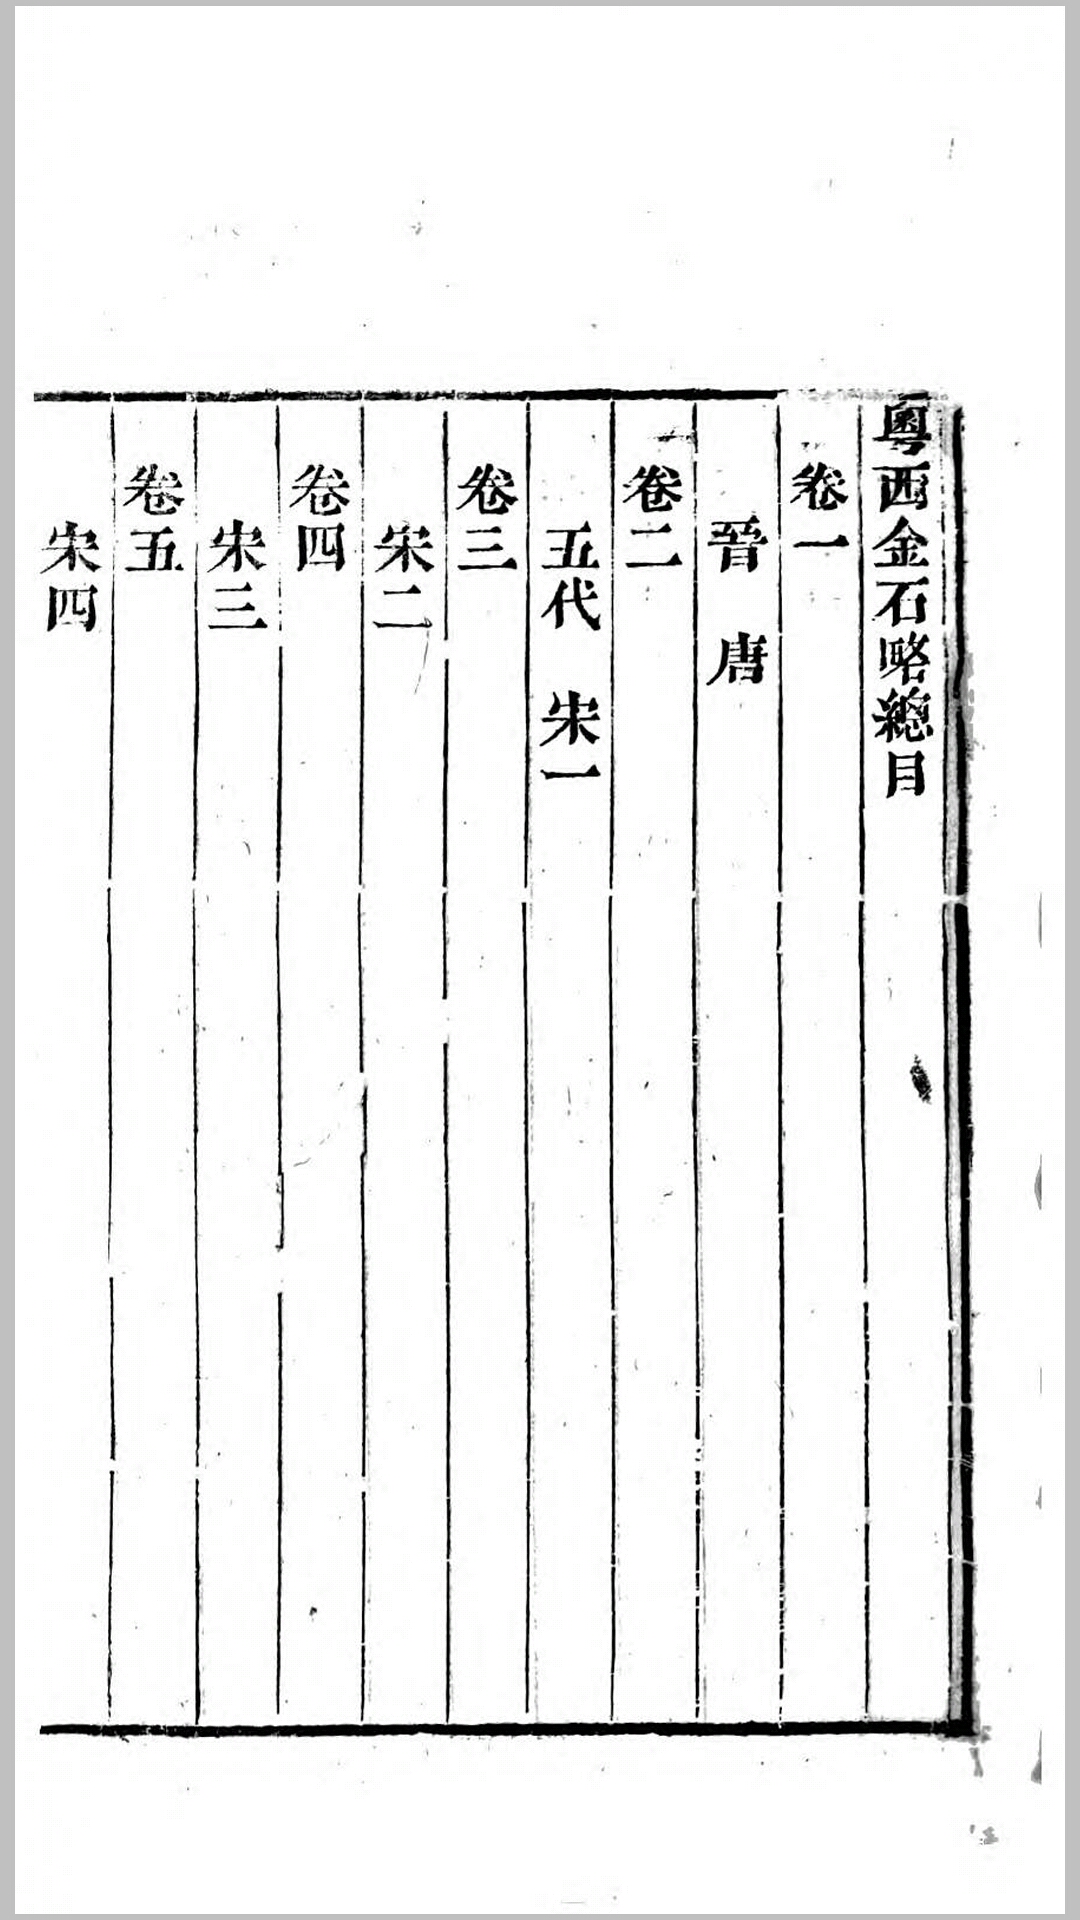 粵西金石略總目
卷一
晉　唐
卷二
五代　宋一
卷三
宋二
卷四
宋三
卷五
宋四